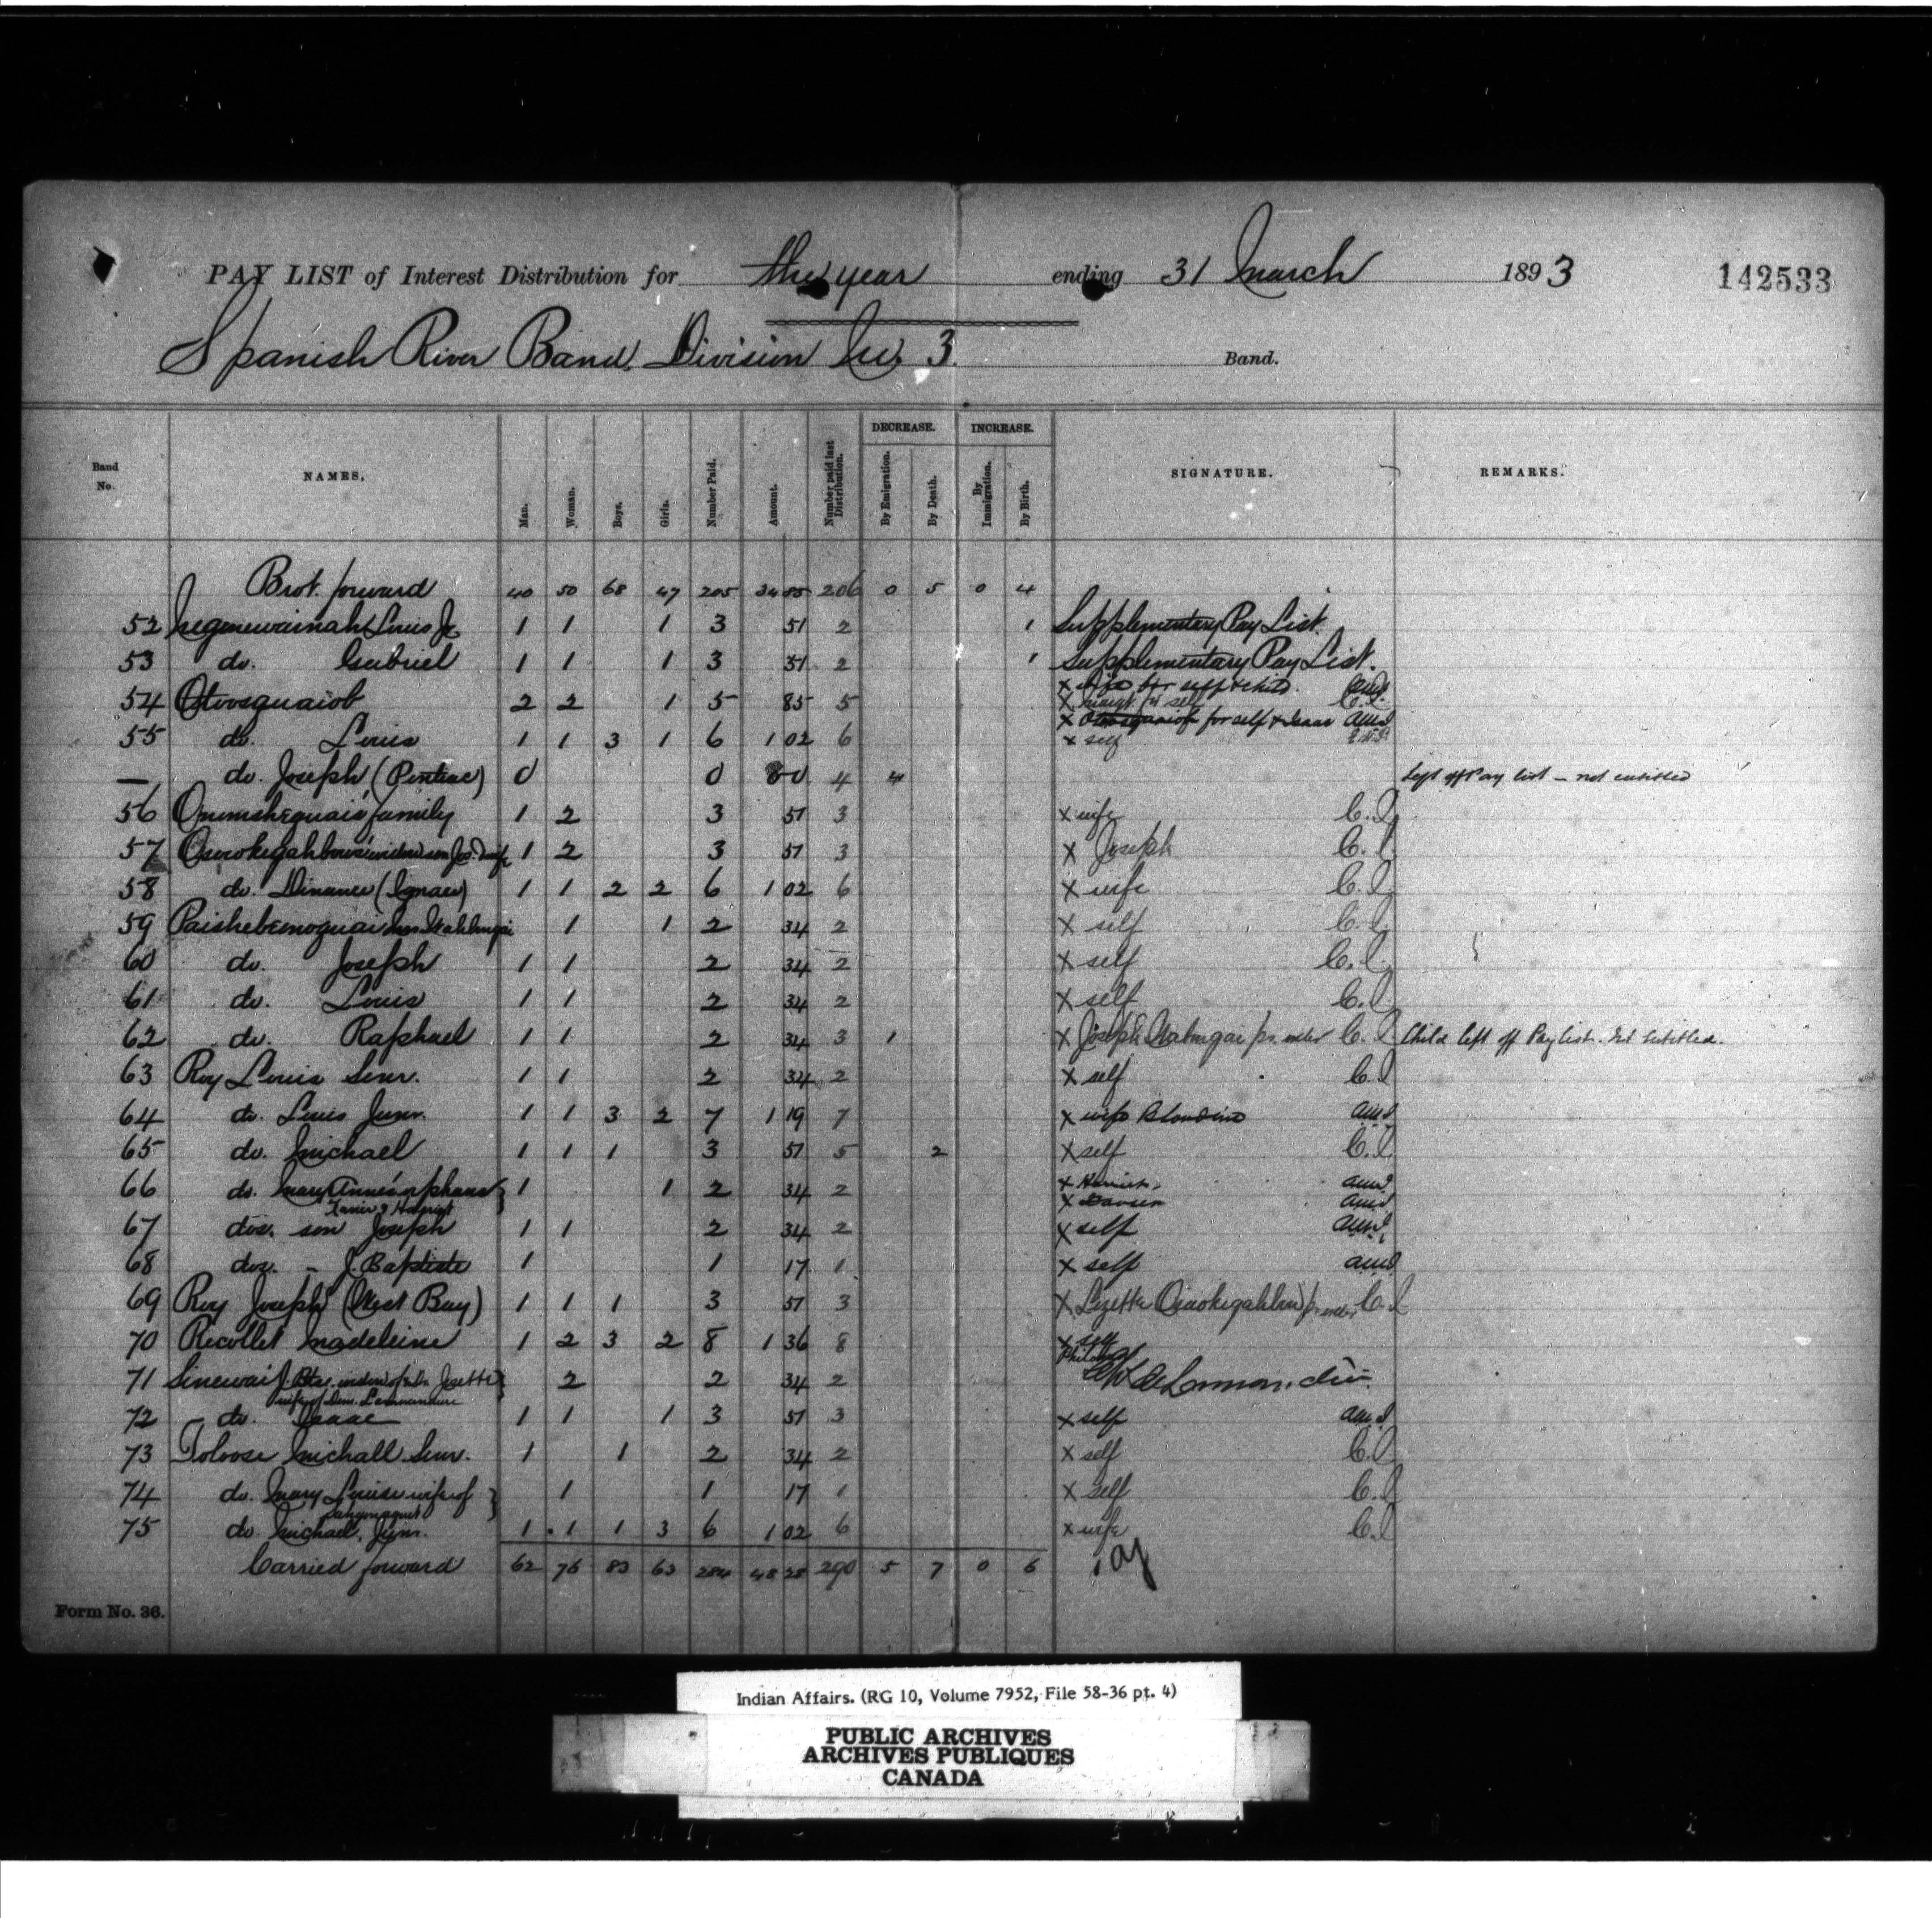 PAY LIST of Interest Distribution for the year ending 31 March 1893 142533
Spanish River Band, Division No. 3. Band.
Band No. NAMES, Man. Woman. Boys. Girls. Number Paid. Amount. Number paid last Distribution. DECREASE. By Emigration. By Death. INCREASE. By Immigration. By Birth. SIGNATURE. REMARKS.
Brot. forward 40 50 68 47 205 34 85 206 0 5 0 4
52 Negenewainah Louis Jr 1 1 1 3 51 2 1 Supplementary Pay List.
53 do. Gabriel 1 1 1 3 51 2 1 Supplementary Pay List.
54 Otoosquaiob 2 2 1 5 85 5 X wife for self & child.
X for self C.L.
X Otoosquaiob for self & Isaac
55 do. Louis 1 1 3 1 6 1 02 6 X self
— do. Joseph (Pontiac) 0 0 0 4 4 Left off Pay list – not entitled
56 family 1 2 3 51 3 X wife C.L.
57 widow son Jos. & wife 1 2 3 51 3 X Joseph C.L.
58 do. (Ignace) 1 1 2 2 6 1 02 6 X wife C.L.
59 1 1 2 34 2 X self C.L.
60 do. Joseph 1 1 2 34 2 X self C.L.
61 do. Louis 1 1 2 34 2 X self C.L.
62 do. Raphael 1 1 2 34 3 1 X Joseph pr. order C.L. Child left off Paylist. Not entitled.
63 Roy Louis Senr. 1 1 2 34 2 X self C.L.
64 do. Louis Junr. 1 1 3 2 7 1 19 7 X wife Blondine
65 do. Michael 1 1 1 3 51 5 2 X self C.L.
66 do. Mary Anne's orphans 1 1 2 34 2 X
X
67 dos. son Joseph 1 1 2 34 2 X self
68 dos. – J. Baptiste 1 1 17 1 X self
69 Roy Joseph (West Bay) 1 1 1 3 51 3 X Lizette pr. order C.L.
70 Recollet Madeleine 1 2 3 2 8 1 36 8 X self
71 Sinewai J. Bte. widow of & Dr. Josette 2 2 34 2
wife of
72 do. Isaac 1 1 1 3 51 3 X self
73 Toloose Michall Senr. 1 1 2 34 2 X self C.L.
74 do. Mary Louise wife of 1 1 17 1 X self C.L.
75 do. Michael, Junr. 1 1 1 3 6 1 02 6 X wife C.L.
Carried forward 62 76 83 63 284 48 28 290 5 7 0 6
Form No. 36.
Indian Affairs. (RG 10, Volume 7952, File 58-36 pt. 4)
PUBLIC ARCHIVES
ARCHIVES PUBLIQUES
CANADA